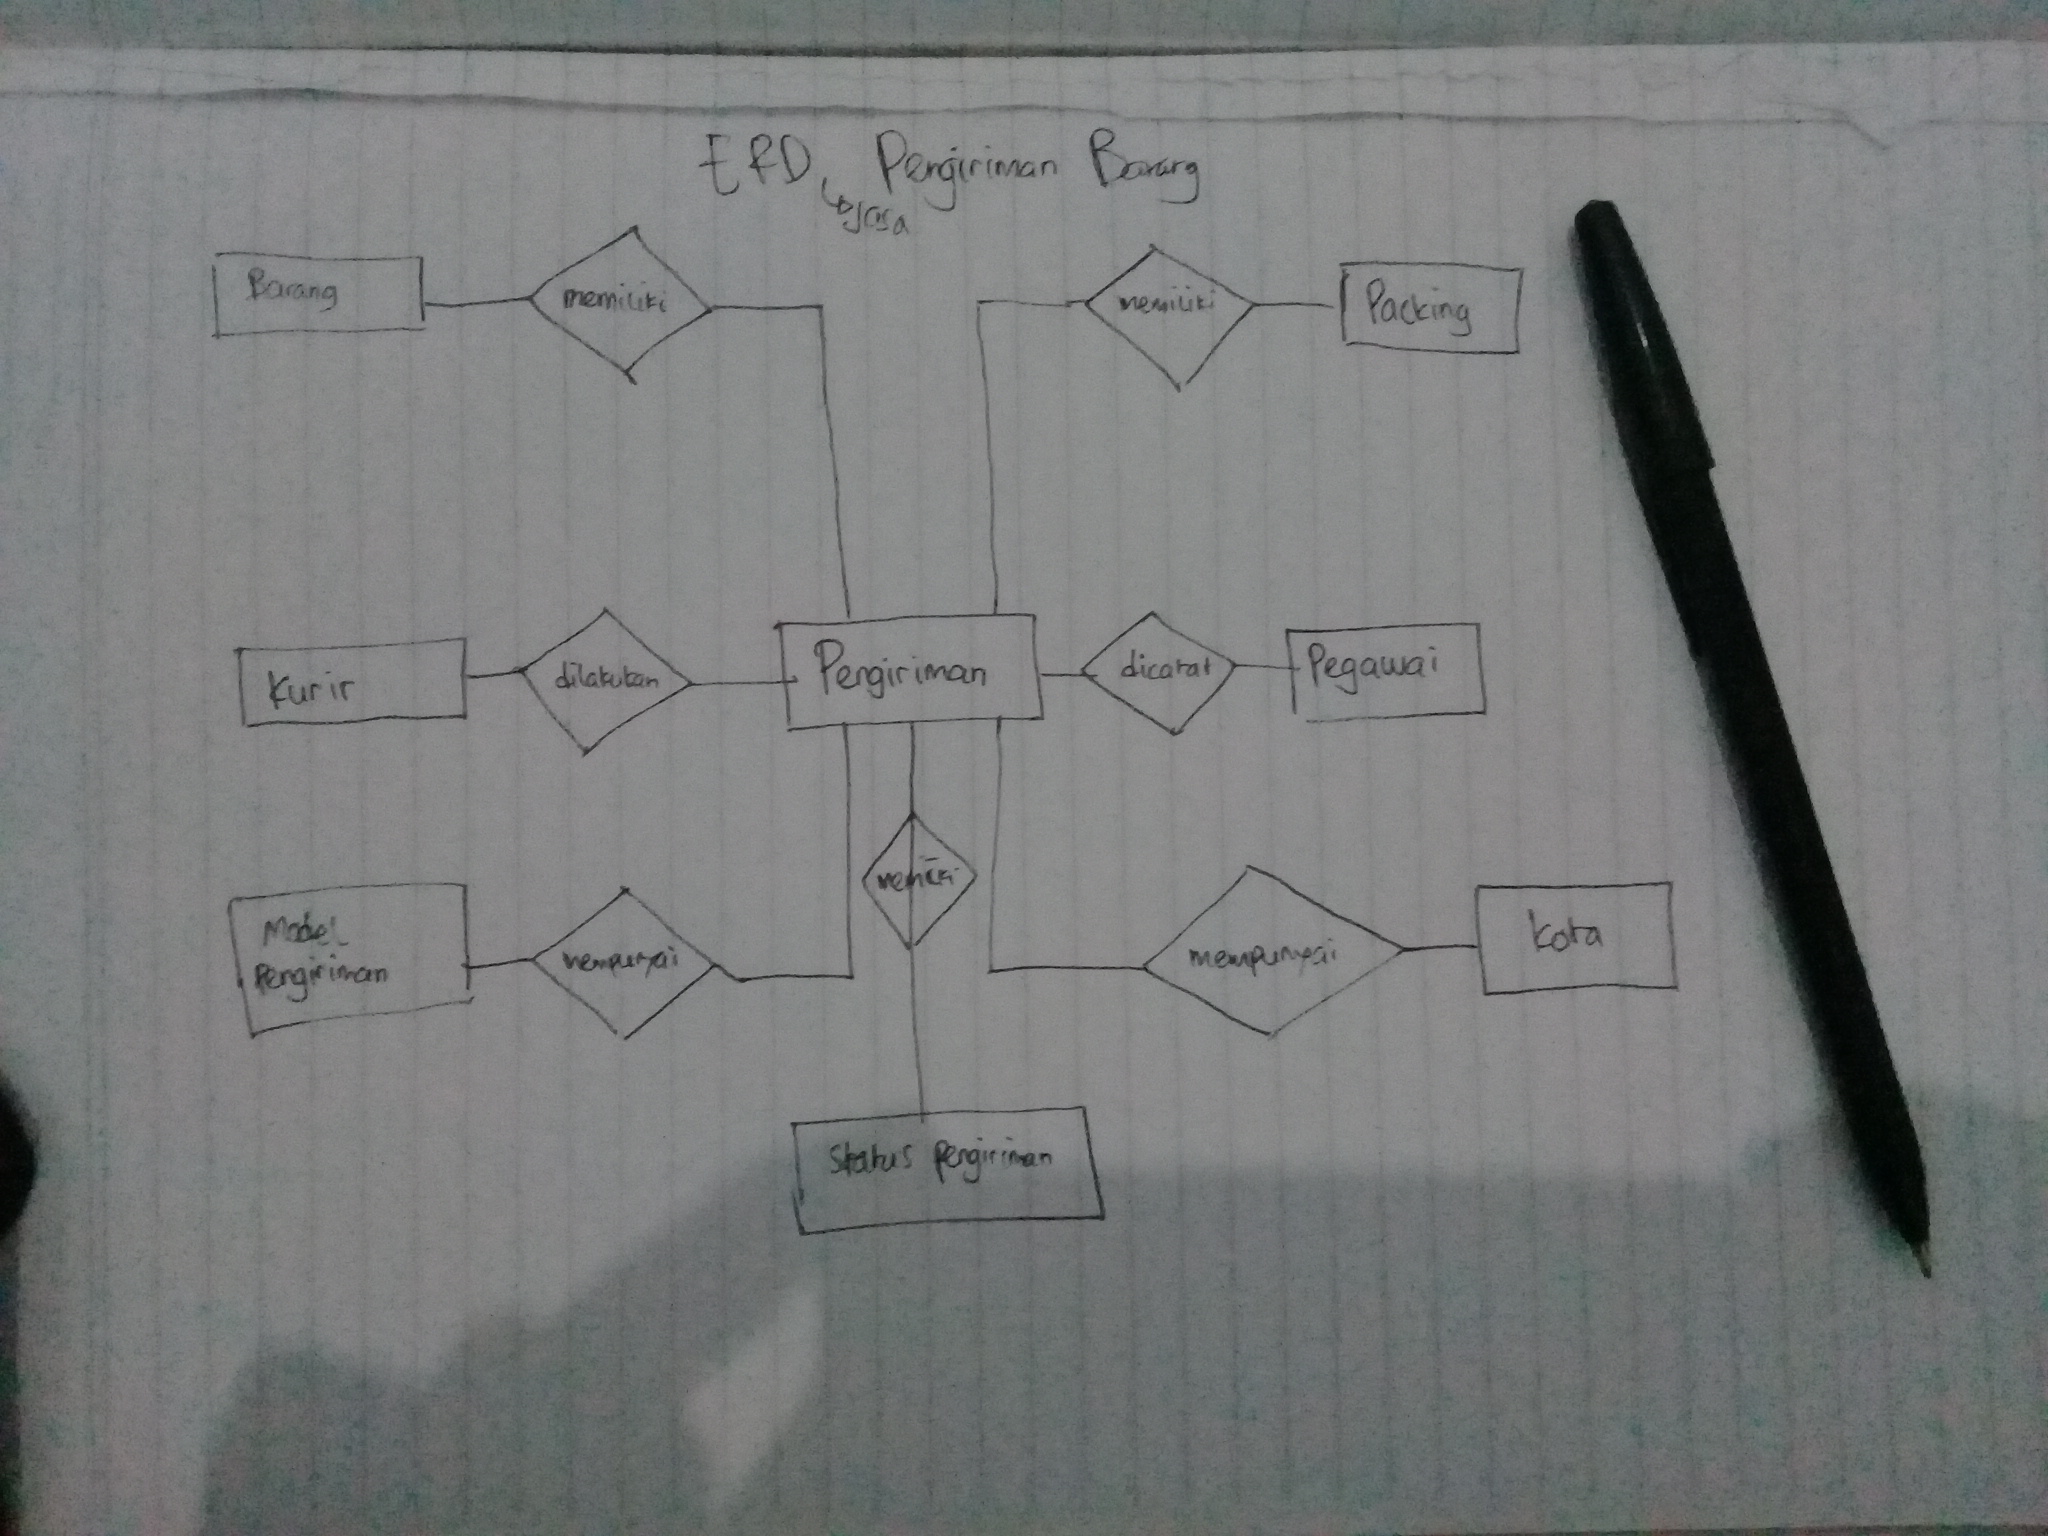 ERD Pengiriman Barang
Jasa
Barang
memiliki
memiliki
Packing
Kurir
dilakukan
Pengiriman
dicatat
Pegawai
Model
Pengiriman
mempunyai
memiliki
mempunyai
Kota
Status pengiriman